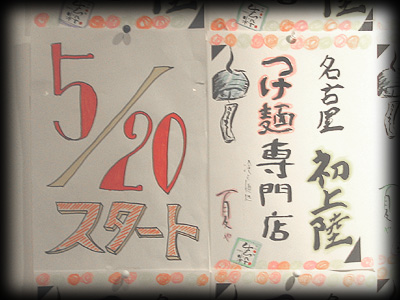 5/20
スタート
名古屋
初上陸
つけ麺専門店
夏や